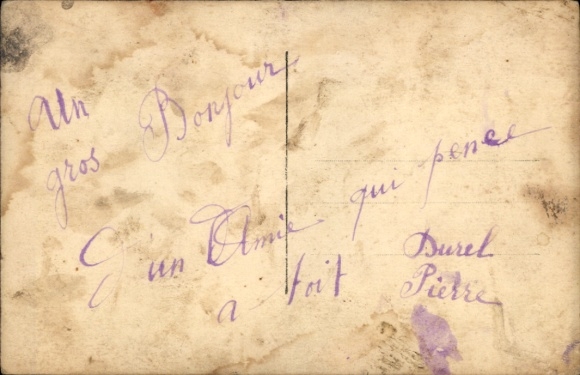 Un
gros Bonjour
d'un Amie qui pence
a toit
Durel
Pierre